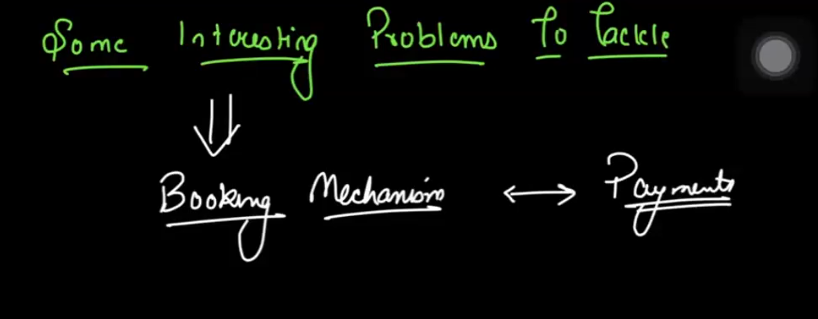 Some Interesting Problems To Tackle
Booking Mechanism ↔ Payments